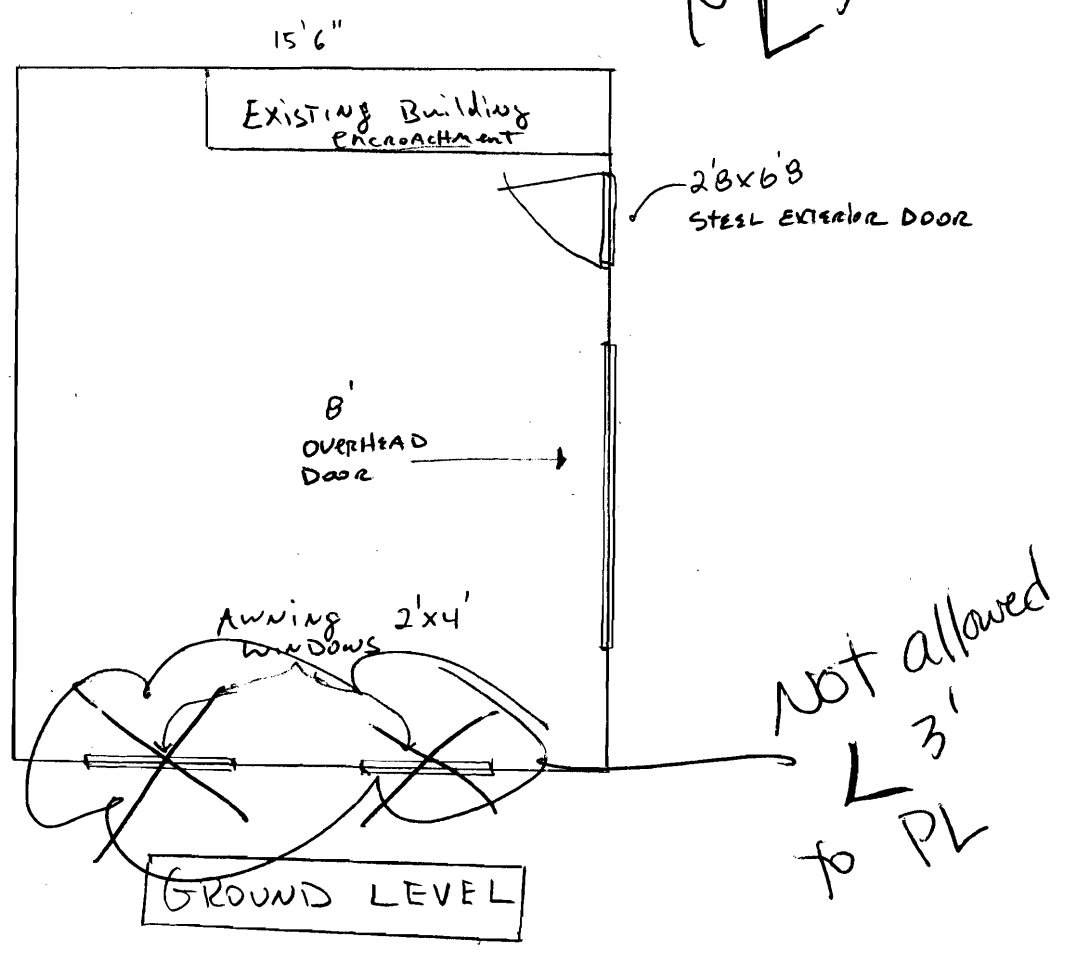 15'6"
Existing Building
encroachment
2'8x6'8
STEEL EXTERIOR DOOR
8'
OVERHEAD
DOOR
AWNING 2'x4'
WINDOWS
Not allowed
L 3'
to PL
GROUND LEVEL